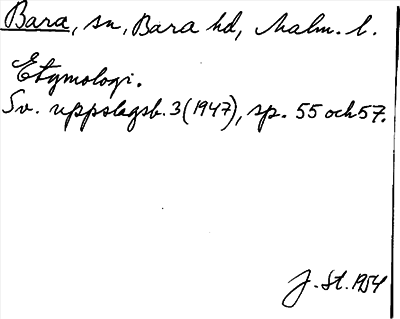 Bara, sn, Bara hd, Malm. l.
Etymologi.
Sv. uppslagsb. 3 (1947), sp. 55 och 57.
J. St. 1954